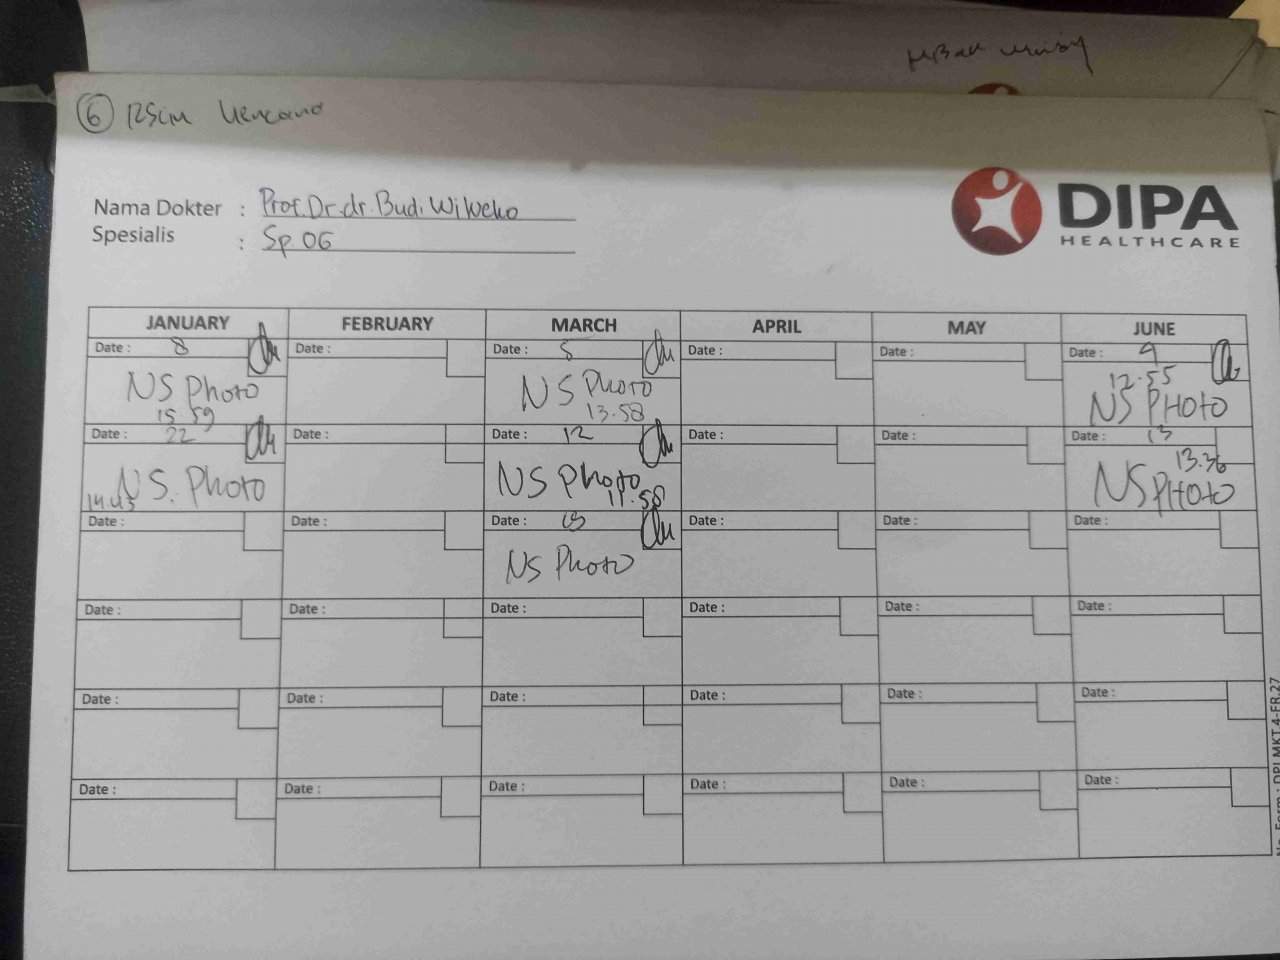 6 RSCM Kencana
Nama Dokter : Prof. Dr. dr. Budi Wiweko
Spesialis : Sp OG
DIPA
HEALTHCARE
JANUARY FEBRUARY MARCH APRIL MAY JUNE
Date : 8 Date : Date : 5 Date : Date : Date : 9
12.55
NS Photo NS Photo NS PHOTO
15 59 13.58
Date : 22 Date : Date : 12 Date : Date : Date : 13
13.36
NS. Photo NS Photo NS PHOTO
14.43 11.58
Date : Date : Date : Date : Date : Date :
NS Photo
Date : Date : Date : Date : Date : Date :
Date : Date : Date : Date : Date : Date :
Date : Date : Date : Date : Date : Date :
No. Form : DPI.MKT.4-FR.27